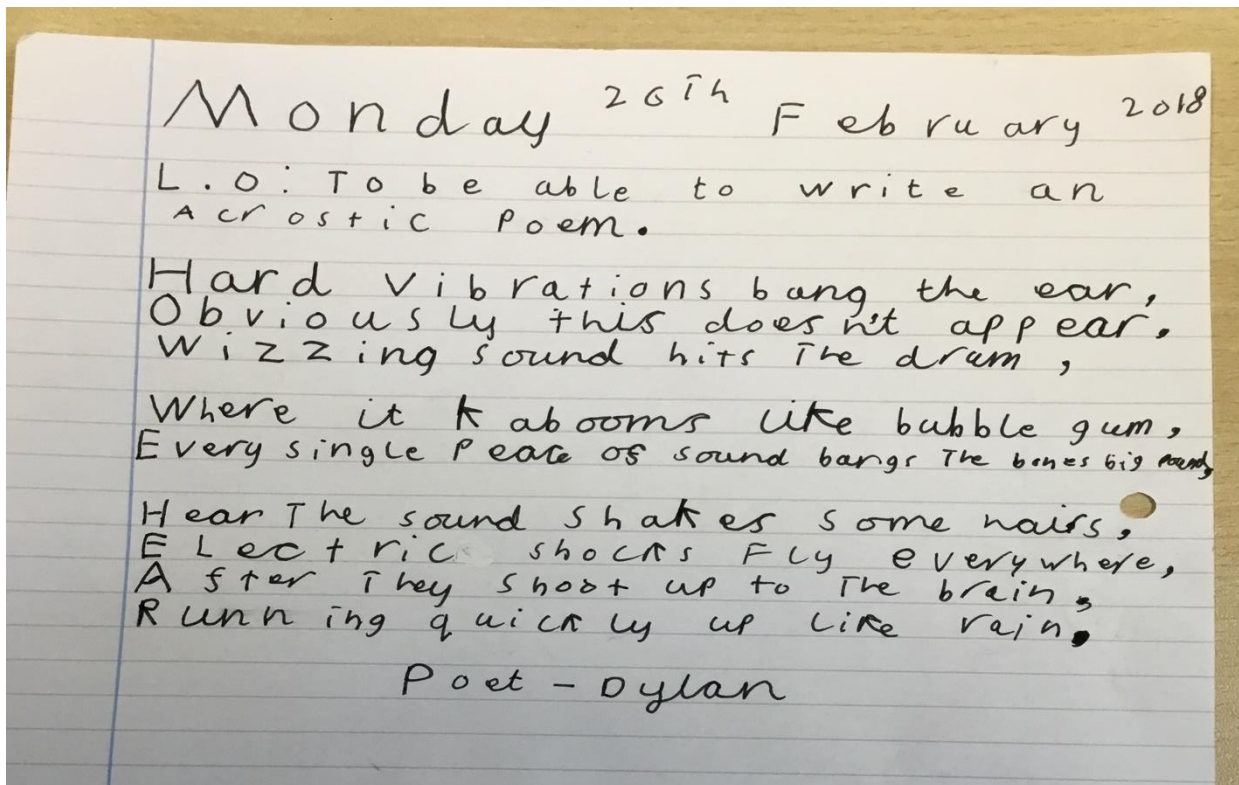 Monday 26th February 2018
L.O: To be able to write an
Acrostic Poem.
Hard vibrations bang the ear,
Obviously this doesn't appear.
Wizzing sound hits The drum,
Where it kabooms like bubble gum,
Every single Peace of sound bangs The bones big
Hear The sound shakes some hairs,
ELectric shocks FLy everywhere,
After They shoot up to The brain,
Running quickly up like rain.
Poet - Dylan